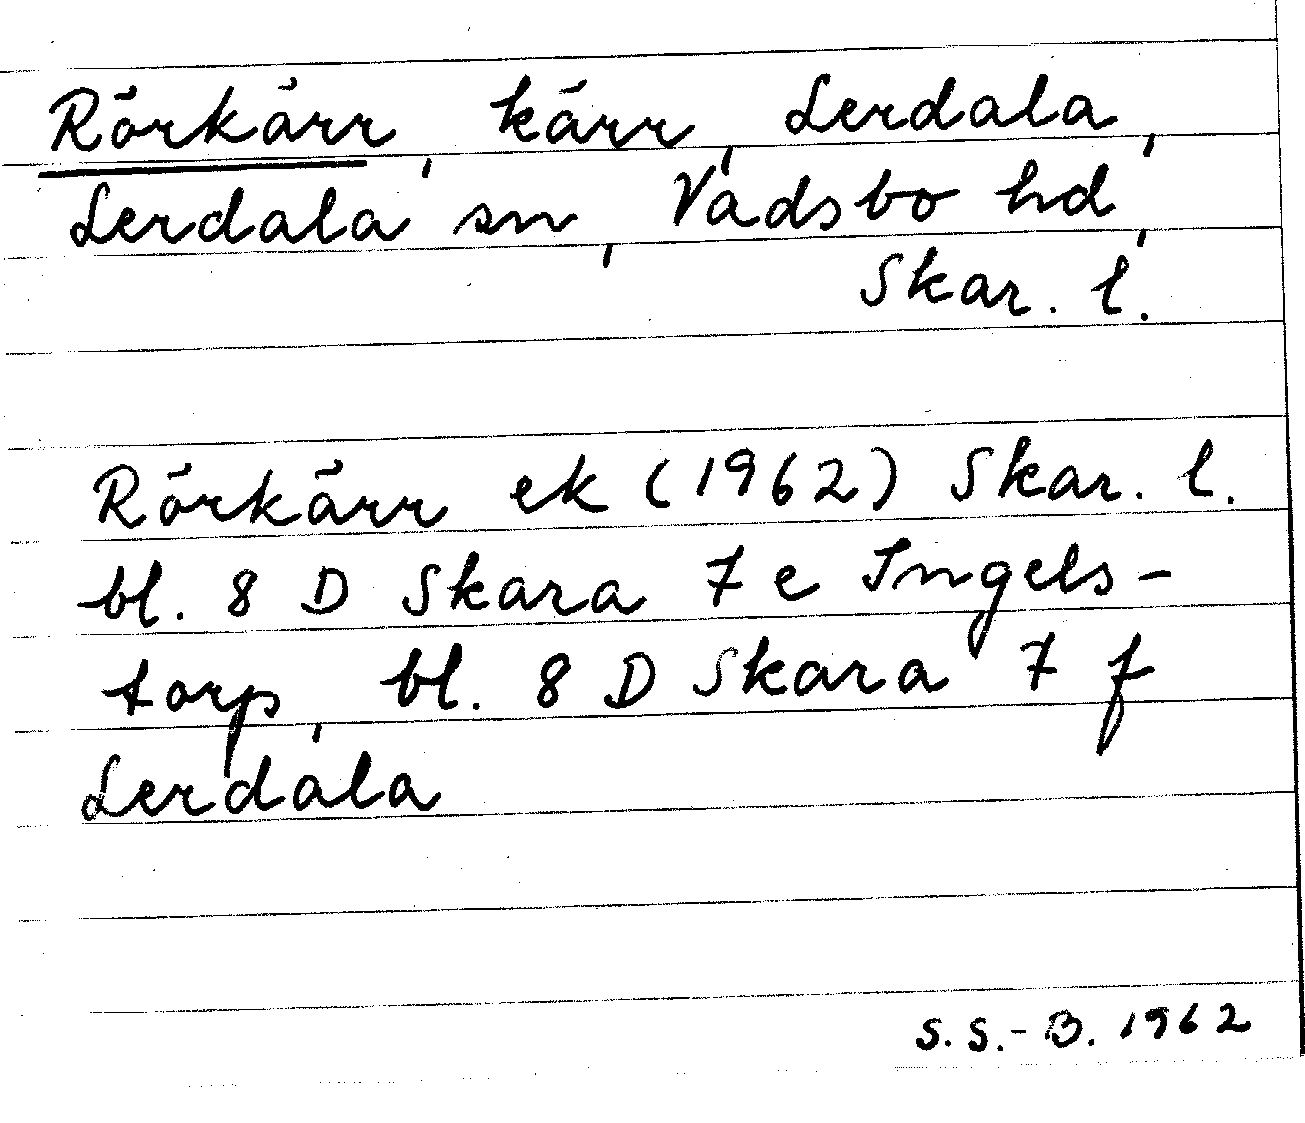 Rörkärr, kärr, Lerdala,
Lerdala sn, Vadsbo hd,
Skar. l.
Rörkärr ek (1962) Skar. l.
bl. 8 D Skara 7 e Ingels-
torp, bl. 8 D Skara 7 f
Lerdala
S. S.-B. 1962